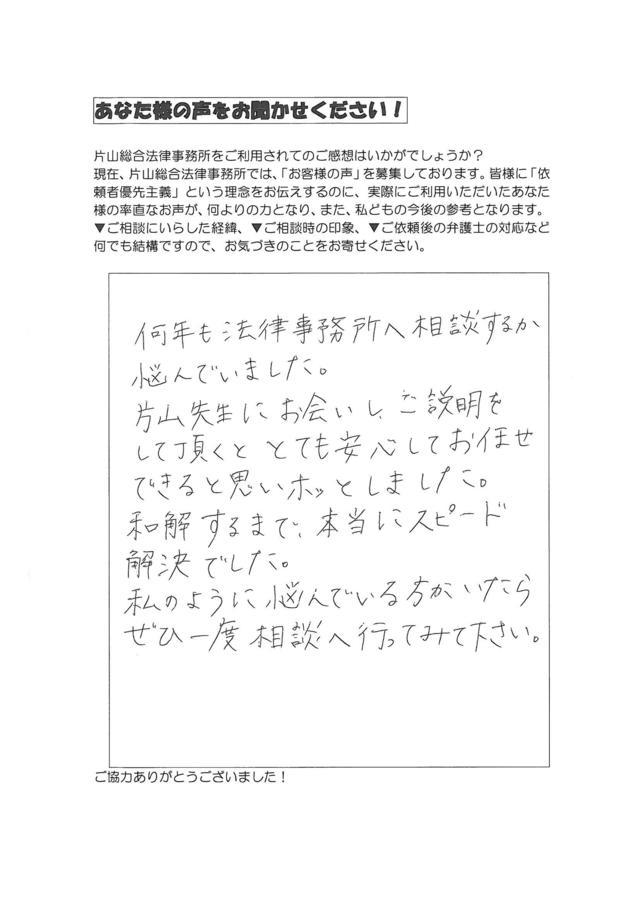 あなた様の声をお聞かせください！
片山総合法律事務所をご利用されてのご感想はいかがでしょうか？
現在、片山総合法律事務所では、「お客様の声」を募集しております。皆様に「依
頼者優先主義」という理念をお伝えするのに、実際にご利用いただいたあなた
様の率直なお声が、何よりの力となり、また、私どもの今後の参考となります。
▼ご相談にいらした経緯、▼ご相談時の印象、▼ご依頼後の弁護士の対応など
何でも結構ですので、お気づきのことをお寄せください。
何年も法律事務所へ相談するか
悩んでいました。
片山先生にお会いし、ご説明を
して頂くと とても安心してお任せ
できると思いホッとしました。
和解するまで、本当にスピード
解決でした。
私のように悩んでいる方がいたら
ぜひ一度相談へ行ってみて下さい。
ご協力ありがとうございました！